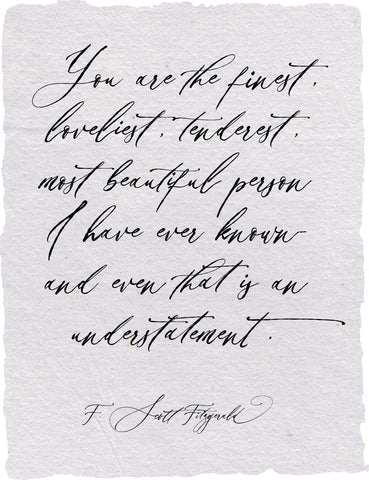 You are the finest,
loveliest, tenderest,
most beautiful person
I have ever known—
and even that is an
understatement.
F. Scott Fitzgerald